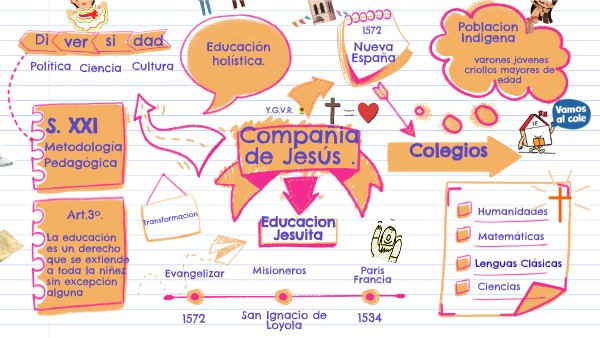 Di ver si dad
Política Ciencia Cultura
Educación
holística.
1572
Nueva
España
Poblacion
Indigena
varones jóvenes
criollos mayores de
edad
Vamos
al cole
S. XXI
Metodología
Pedagógica
Y.G.V.R.
=
Compañia
de Jesús .
Colegios
Art.3º.
La educación
es un derecho
que se extiende
a toda la niñez
sin excepción
alguna
Transformación
Educacion
Jesuita
Humanidades
Matemáticas
Lenguas Clásicas
Ciencias
Evangelizar
Misioneros
Paris
Francia
1572
San Ignacio de
Loyola
1534